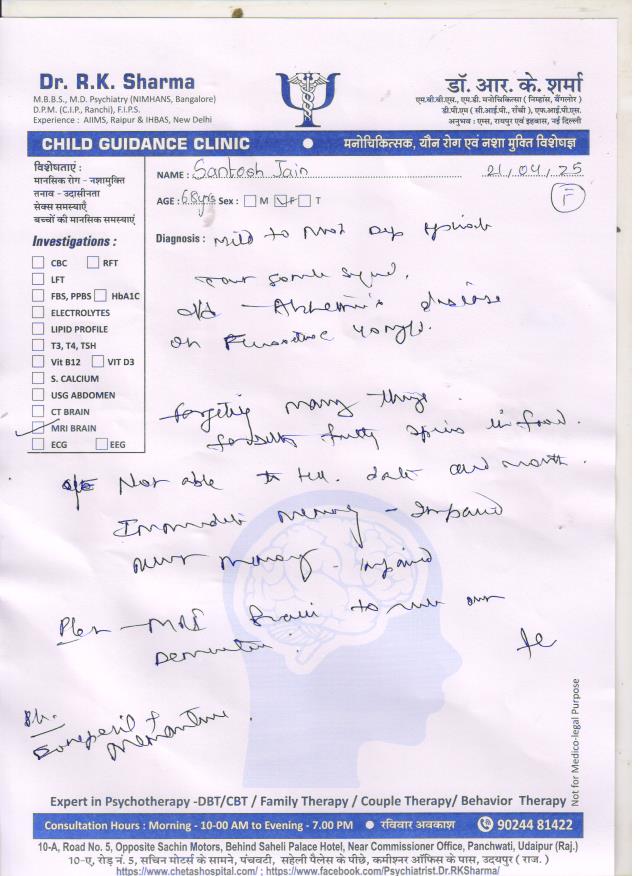 Dr. R.K. Sharma
M.B.B.S., M.D. Psychiatry (NIMHANS, Bangalore)
D.P.M. (C.I.P., Ranchi), F.I.P.S.
Experience : AIIMS, Raipur & IHBAS, New Delhi
डॉ. आर. के. शर्मा
एम.बी.बी.एस., एम.डी. मनोचिकित्सा ( निम्हांस, बैंगलोर )
डी.पी.एम ( सी.आई.पी., राँची ), एफ.आई.पी.एस.
अनुभव : एम्स, रायपुर एवं इहबास, नई दिल्ली
CHILD GUIDANCE CLINIC • मनोचिकित्सक, यौन रोग एवं नशा मुक्ति विशेषज्ञ
विशेषताएं :
मानसिक रोग - नशामुक्ति
तनाव - उदासीनता
सेक्स समस्याएँ
बच्चों की मानसिक समस्याएं
NAME : Santosh Jain 21/04/25
AGE : 68yrs Sex : M F T
F
Investigations :
CBC RFT
LFT
FBS, PPBS HbA1C
ELECTROLYTES
LIPID PROFILE
T3, T4, TSH
Vit B12 VIT D3
S. CALCIUM
USG ABDOMEN
CT BRAIN
MRI BRAIN
ECG EEG
Diagnosis : mild to Mod Dep
disease
on
forgetting many things
in food.
Not able to tell date and month.
memory - Impaired
memory - impaired
Plan - MRI Brain to rule out
Dementia.
Donepezil +
Memantine.
Not for Medico-legal Purpose
Expert in Psychotherapy -DBT/CBT / Family Therapy / Couple Therapy/ Behavior Therapy
Consultation Hours : Morning - 10-00 AM to Evening - 7.00 PM • रविवार अवकाश 90244 81422
10-A, Road No. 5, Opposite Sachin Motors, Behind Saheli Palace Hotel, Near Commissioner Office, Panchwati, Udaipur (Raj.)
10-ए, रोड़ नं. 5, सचिन मोटर्स के सामने, पंचवटी, सहेली पैलेस के पीछे, कमीश्नर ऑफिस के पास, उदयपुर ( राज. )
https://www.chetashospital.com/ ; https://www.facebook.com/Psychiatrist.Dr.RKSharma/